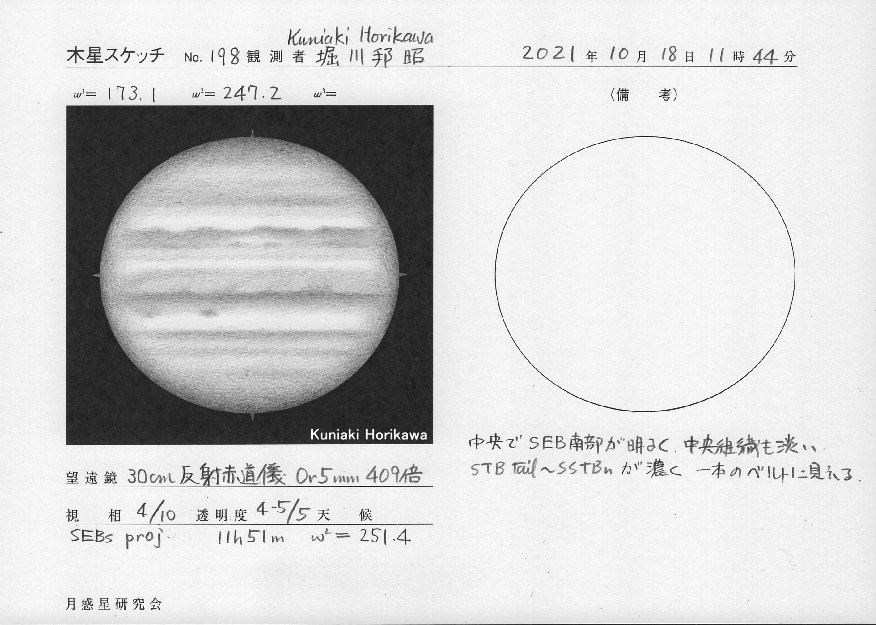 Kuniaki Horikawa
木星スケッチ No. 198 観測者 堀川邦昭 2021年10月18日11時44分
ω¹= 173.1 ω²= 247.2 ω³=
(備 考)
Kuniaki Horikawa
中央でSEB南部が明るく、中央組織も淡い
STB tail~SSTBnが濃く 一本のベルトに見える.
望遠鏡 30cm反射赤道儀 Or5mm 409倍
視相 4/10 透明度 4-5/5 天候
SEBs proj. 11h51m ω²= 251.4
月惑星研究会